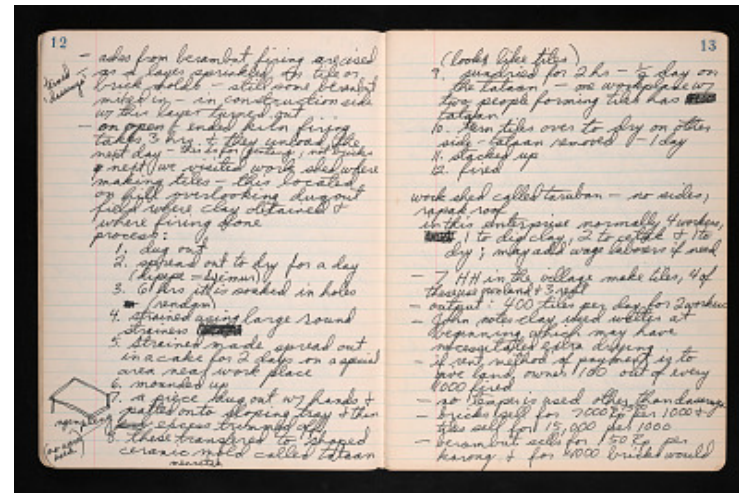 12
- ashes from berambut firing are used
as a layer sprinkled in tile or
brick molds - still some berambut
mixed in - in construction side
w/ this layer turned out
- on open ended kiln firing
takes 3 hrs + they unload the
next day - this is for ; not bricks
next we visited work shed where
making tiles - this located
on hill overlooking dugout
field where clay obtained +
where firing done
process:
1. dug out
2. spread out to dry for a day
(dipepe = dijemur)
3. 6 hrs it is soaked in holes
(rendam)
4. strained using large round
strainers
5. strained made spread out
in a cake for 2 days on a special
area near work place
6. mounded up
7. a piece dug out w/ hands +
patted onto sloping tray + then
excess trimmed off
8. these transfered to shaped
ceramic mold called tataan
13
(looks like tiles)
9. sundried for 2 hrs - ½ day on
the tataan, - one workplace w/
two people forming tiles has
tataan!
10. turn tiles over to dry on other
side - tataan removed - 1 day
11. stacked up
12. fired
work shed called taruban - no sides,
rapak roof
in this enterprise normally 4 workers,
1 to dig clay, 2 to + 1 to
dry; may add wage labors if need
- 7 HH in the village make tiles, 4 of
these use own land + 3 rent
- output: 400 tiles per day for 2 workers
- John notes clay used wetter at
beginning which may have
necessitated extra drying
- if rent method of payment is to
give land owner 100 out of every
1000 fired
- no temper is used other than
- bricks sell for 7000 Rp per 1000 +
tiles sell for 15,000 per 1000
- berambut sells for 150 Rp per
karong + for 4000 bricks would